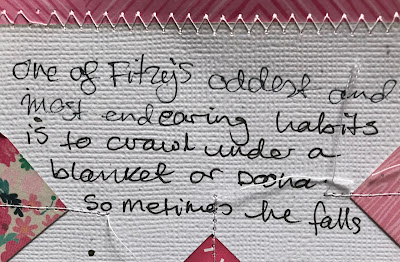 one of Fitzy's oddest and
most endearing habits
is to crawl under a
blanket or Doona.
Sometimes he falls